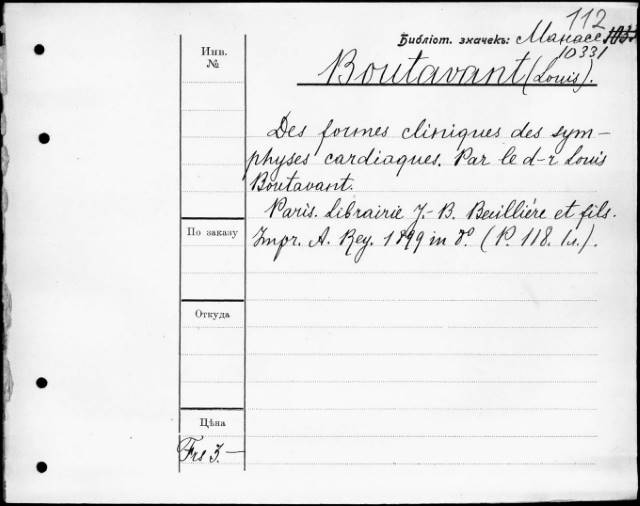 112
Библіот. значекъ: Манасс
10331
Инв.
№
Boutavant (Louis).
Des formes cliniques des sym-
physes cardiaques. Par le d-r Louis
Boutavant.
Paris. Librairie J.-B. Beillière et fils.
Impr. A. Rey. 1899 in 8º. (P. 118. 1s.).
По заказу
Откуда
Цѣна
Frs 3.—